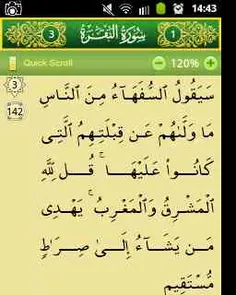 14:43
3 سُورَةُ البَقَرَةِ 1
Quick Scroll 120%
3
142
سَيَقُولُ ٱلسُّفَهَآءُ مِنَ ٱلنَّاسِ
مَا وَلَّىٰهُمْ عَن قِبْلَتِهِمُ ٱلَّتِى
كَانُوا۟ عَلَيْهَا ۚ قُل لِّلَّهِ
ٱلْمَشْرِقُ وَٱلْمَغْرِبُ ۚ يَهْدِى
مَن يَشَآءُ إِلَىٰ صِرَٰطٍۢ
مُّسْتَقِيمٍۢ